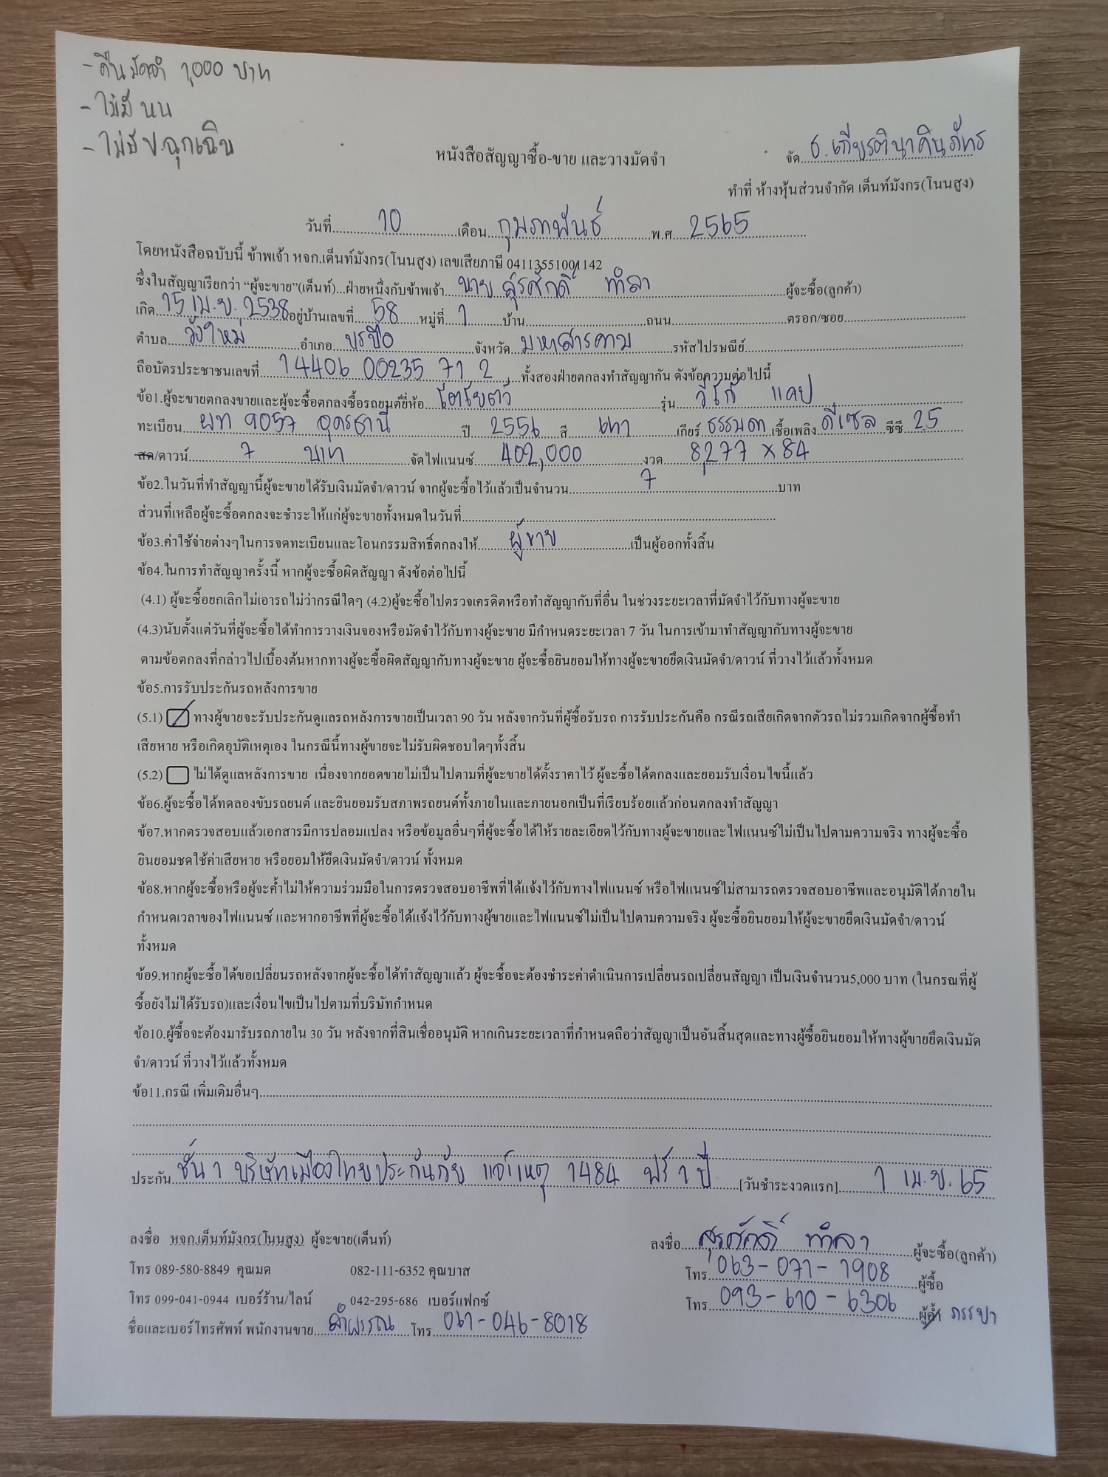 - คืนมัดจำ 1,000 บาท
- ไม่มี นน
- ไม่มี ป.ฉุกเฉิน
หนังสือสัญญาซื้อ-ขาย และวางมัดจำ
จัด ธ.เกียรตินาคินภัทร
ทำที่ ห้างหุ้นส่วนจำกัด เต็นท์มังกร(โนนสูง)
วันที่ 10 เดือน กุมภาพันธ์ พ.ศ. 2565
โดยหนังสือฉบับนี้ ข้าพเจ้า หจก.เต็นท์มังกร(โนนสูง) เลขเสียภาษี 04113551001142
ซึ่งในสัญญาเรียกว่า "ผู้จะขาย"(เต็นท์)...ฝ่ายหนึ่งกับข้าพเจ้า นาย สุรศักดิ์ ทำลา ผู้จะซื้อ(ลูกค้า)
เกิด 15 เม.ย. 2538 อยู่บ้านเลขที่ 58 หมู่ที่ 1 บ้าน ถนน ตรอก/ซอย
ตำบล วังใหม่ อำเภอ บรบือ จังหวัด มหาสารคาม รหัสไปรษณีย์
ถือบัตรประชาชนเลขที่ 14406 00235 71 2 ทั้งสองฝ่ายตกลงทำสัญญากัน ดังข้อความต่อไปนี้
ข้อ1.ผู้จะขายตกลงขายและผู้จะซื้อตกลงซื้อรถยนต์ยี่ห้อ โตโยต้า รุ่น วีโก้ แคป
ทะเบียน ผท 9057 อุดรธานี ปี 2556 สี เทา เกียร์ ธรรมดา เชื้อเพลิง ดีเซล ซีซี 25
สด/ดาวน์ 7 บาท จัดไฟแนนซ์ 402,000 งวด 8,277 x 84
ข้อ2.ในวันที่ทำสัญญานี้ผู้จะขายได้รับเงินมัดจำ/ดาวน์ จากผู้จะซื้อไว้แล้วเป็นจำนวน 7 บาท
ส่วนที่เหลือผู้จะซื้อตกลงจะชำระให้แก่ผู้จะขายทั้งหมดในวันที่
ข้อ3.ค่าใช้จ่ายต่างๆในการจดทะเบียนและโอนกรรมสิทธิ์ตกลงให้ ผู้ขาย เป็นผู้ออกทั้งสิ้น
ข้อ4.ในการทำสัญญาครั้งนี้ หากผู้จะซื้อผิดสัญญา ดังข้อต่อไปนี้
(4.1) ผู้จะซื้อยกเลิกไม่เอารถไม่ว่ากรณีใดๆ (4.2)ผู้จะซื้อไปตรวจเครดิตหรือทำสัญญากับที่อื่น ในช่วงระยะเวลาที่มัดจำไว้กับทางผู้จะขาย
(4.3)นับตั้งแต่วันที่ผู้จะซื้อได้ทำการวางเงินจองหรือมัดจำไว้กับทางผู้จะขาย มีกำหนดระยะเวลา 7 วัน ในการเข้ามาทำสัญญากับทางผู้จะขาย
ตามข้อตกลงที่กล่าวไปเบื้องต้นหากทางผู้จะซื้อผิดสัญญากับทางผู้จะขาย ผู้จะซื้อยินยอมให้ทางผู้จะขายยึดเงินมัดจำ/ดาวน์ ที่วางไว้แล้วทั้งหมด
ข้อ5.การรับประกันรถหลังการขาย
(5.1) ทางผู้ขายจะรับประกันดูแลรถหลังการขายเป็นเวลา 90 วัน หลังจากวันที่ผู้ซื้อรับรถ การรับประกันคือ กรณีรถเสียเกิดจากตัวรถไม่รวมเกิดจากผู้ซื้อทำ
เสียหาย หรือเกิดอุบัติเหตุเอง ในกรณีนี้ทางผู้ขายจะไม่รับผิดชอบใดๆทั้งสิ้น
(5.2) ไม่ได้ดูแลหลังการขาย เนื่องจากยอดขายไม่เป็นไปตามที่ผู้จะขายได้ตั้งราคาไว้ ผู้จะซื้อได้ตกลงและยอมรับเงื่อนไขนี้แล้ว
ข้อ6.ผู้จะซื้อได้ทดลองขับรถยนต์ และยินยอมรับสภาพรถยนต์ทั้งภายในและภายนอกเป็นที่เรียบร้อยแล้วก่อนตกลงทำสัญญา
ข้อ7.หากตรวจสอบแล้วเอกสารมีการปลอมแปลง หรือข้อมูลอื่นๆที่ผู้จะซื้อได้ให้รายละเอียดไว้กับทางผู้จะขายและไฟแนนซ์ไม่เป็นไปตามความจริง ทางผู้จะซื้อ
ยินยอมชดใช้ค่าเสียหาย หรือยอมให้ยึดเงินมัดจำ/ดาวน์ ทั้งหมด
ข้อ8.หากผู้จะซื้อหรือผู้จะค้ำไม่ให้ความร่วมมือในการตรวจสอบอาชีพที่ได้แจ้งไว้กับทางไฟแนนซ์ หรือไฟแนนซ์ไม่สามารถตรวจสอบอาชีพและอนุมัติได้ภายใน
กำหนดเวลาของไฟแนนซ์ และหากอาชีพที่ผู้จะซื้อได้แจ้งไว้กับทางผู้ขายและไฟแนนซ์ไม่เป็นไปตามความจริง ผู้จะซื้อยินยอมให้ผู้จะขายยึดเงินมัดจำ/ดาวน์
ทั้งหมด
ข้อ9.หากผู้จะซื้อได้ขอเปลี่ยนรถหลังจากผู้จะซื้อได้ทำสัญญาแล้ว ผู้จะซื้อจะต้องชำระค่าดำเนินการเปลี่ยนรถเปลี่ยนสัญญา เป็นเงินจำนวน5,000 บาท (ในกรณที่ผู้
ซื้อยังไม่ได้รับรถ)และเงื่อนไขเป็นไปตามที่บริษัทกำหนด
ข้อ10.ผู้ซื้อจะต้องมารับรถภายใน 30 วัน หลังจากที่สินเชื่ออนุมัติ หากเกินระยะเวลาที่กำหนดถือว่าสัญญาเป็นอันสิ้นสุดและทางผู้ซื้อยินยอมให้ทางผู้ขายยึดเงินมัด
จำ/ดาวน์ ที่วางไว้แล้วทั้งหมด
ข้อ11.กรณี เพิ่มเติมอื่นๆ
ประกัน ชั้น 1 บริษัทเมืองไทยประกันภัย แจ้งเหตุ 1484 ฟรี 1 ปี [วันชำระงวดแรก] 1 เม.ย. 65
ลงชื่อ หจก.เต็นท์มังกร(โนนสูง) ผู้จะขาย(เต็นท์)
ลงชื่อ สุรศักดิ์ ทำลา ผู้จะซื้อ(ลูกค้า)
โทร 089-580-8849 คุณมด 082-111-6352 คุณบาส
โทร 063-071-1908 ผู้ซื้อ
โทร 099-041-0944 เบอร์ร้าน/ไลน์ 042-295-686 เบอร์แฟกซ์
โทร 093-610-6306 ผู้ค้ำ ภรรยา
ชื่อและเบอร์โทรศัพท์ พนักงานขาย โทร 061-046-8018